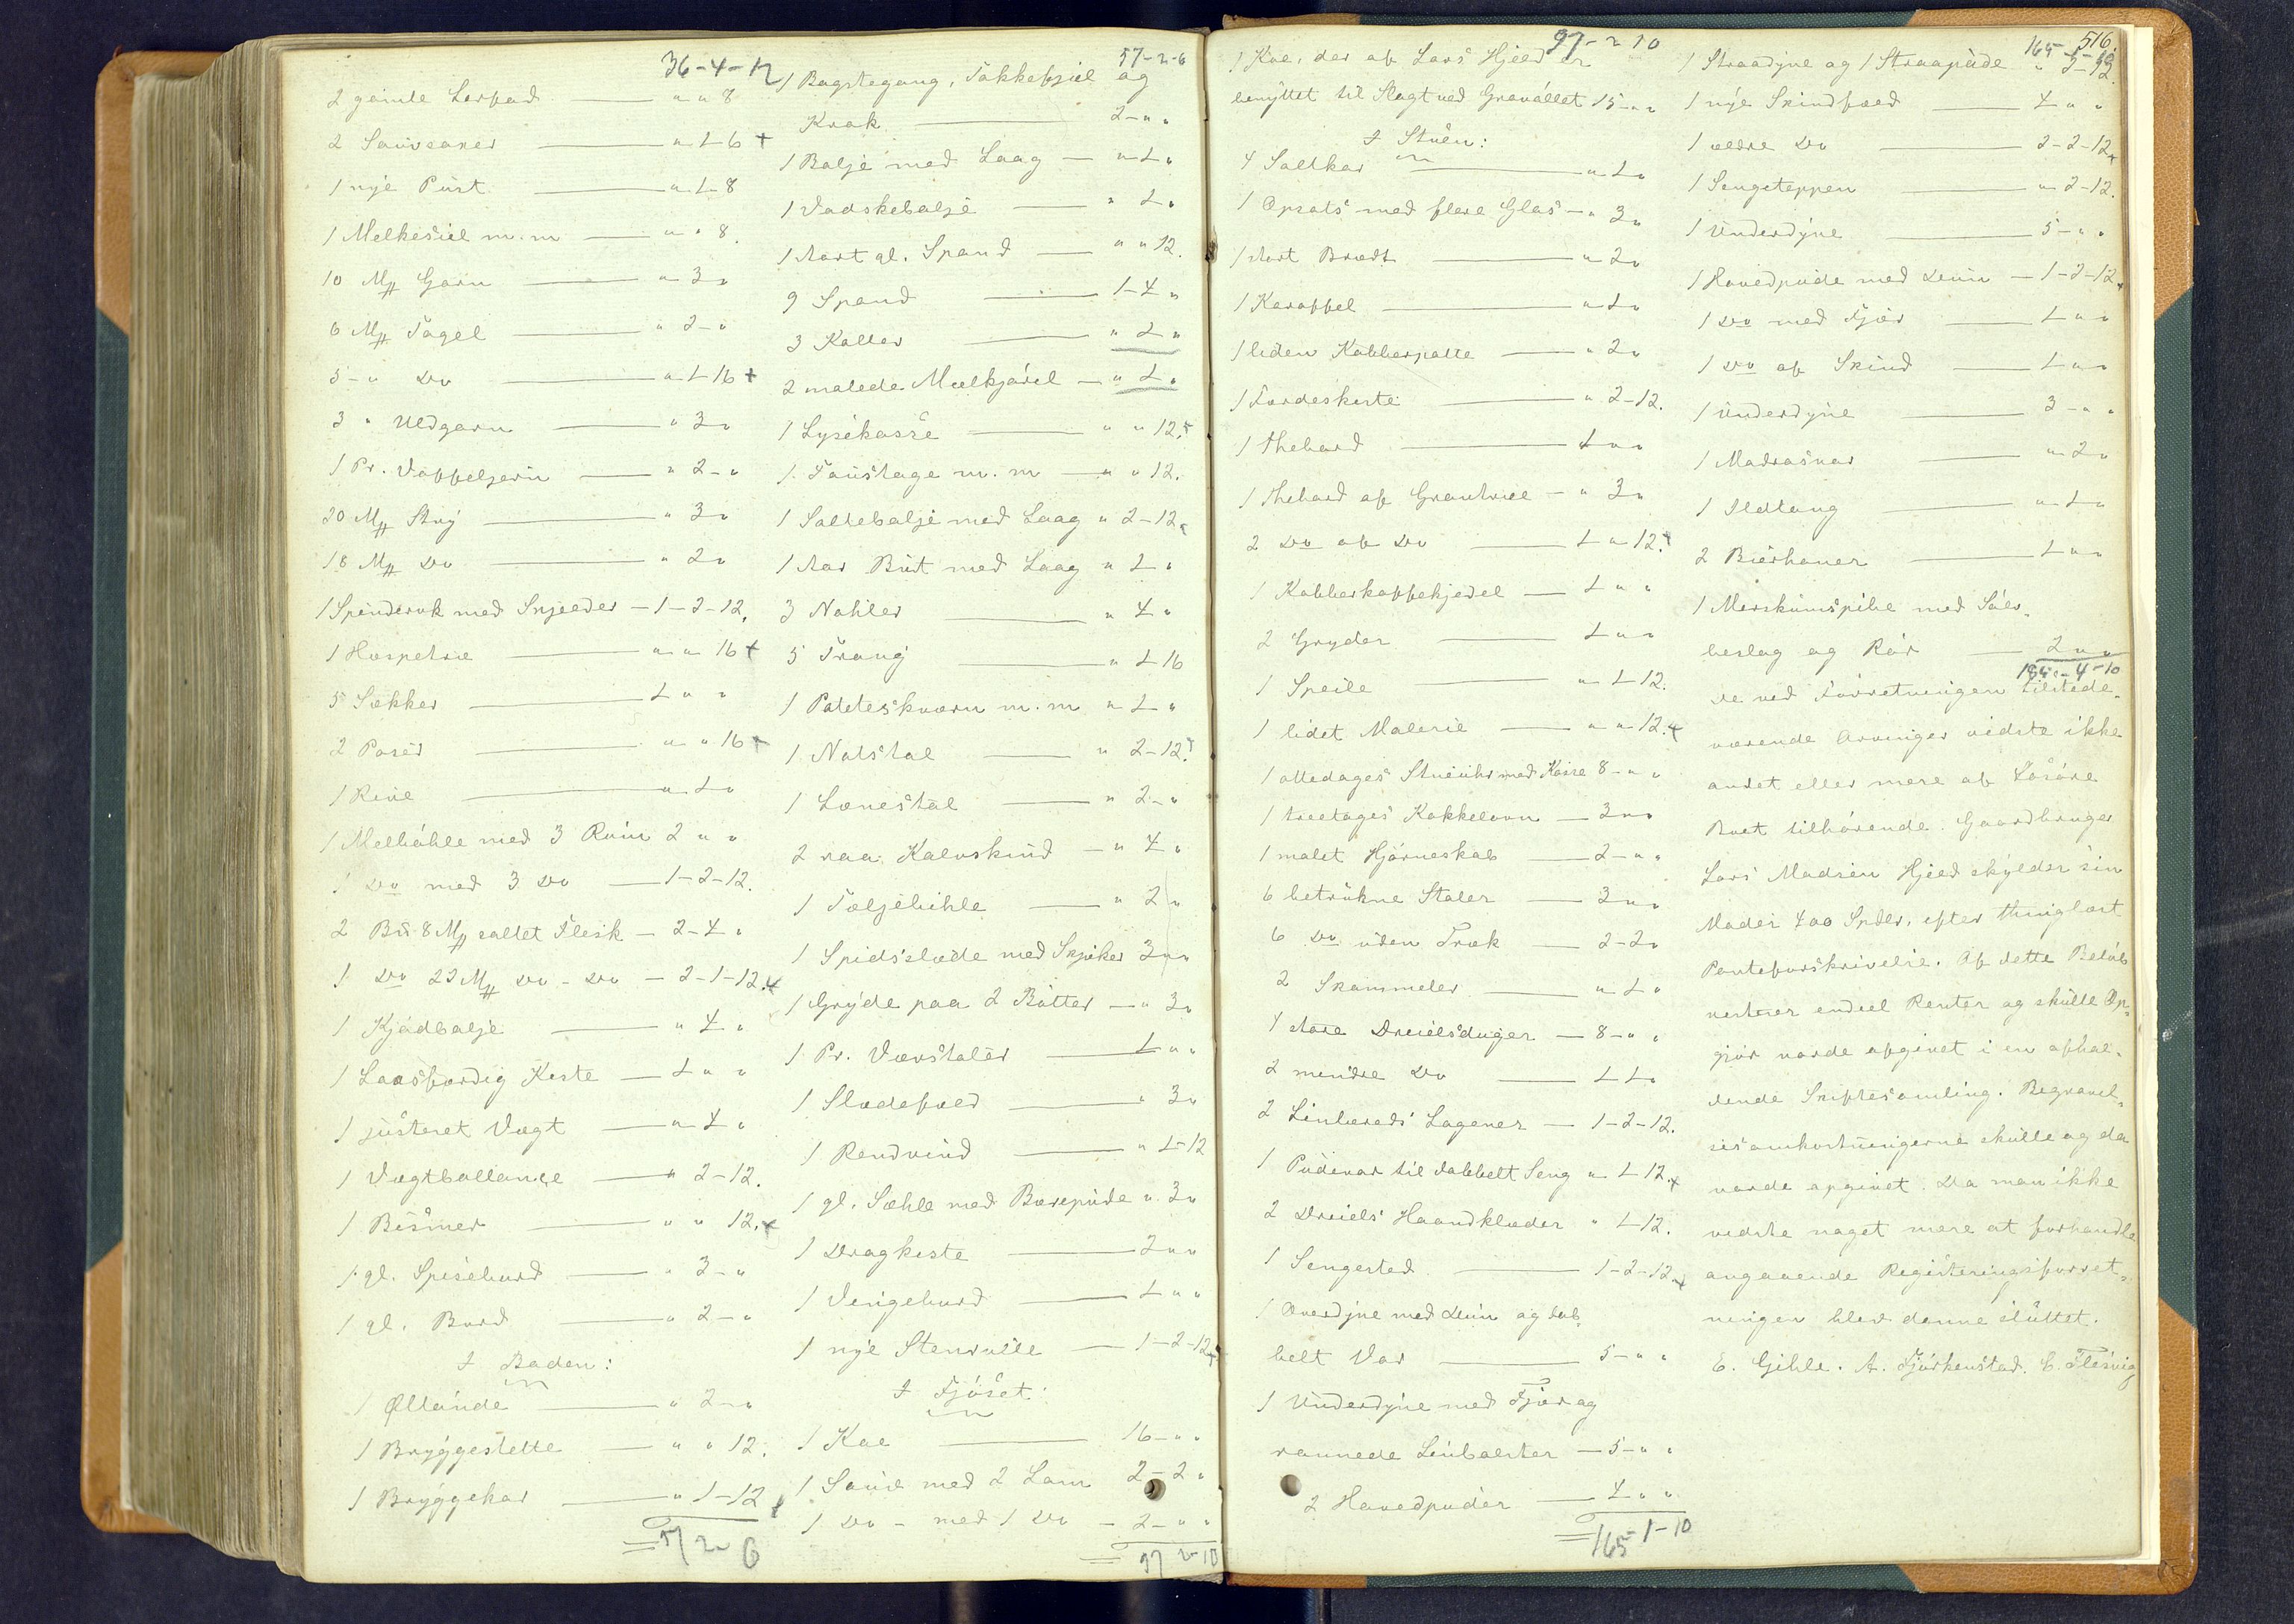 36-4-12
2 gamle Lerfad — " " 8
2 Sauvearer — " 1-6 +
1 nye Pust — " 1-8
1 Melkesiel m. m — " " 8.
10 Mp Garn — " 3 "
6 Mp Tagel — " 2 - "
5 - " Do — " 1-16 +
3 " Uldgarn — " 3 "
1 Pr. Vaffeljern — " 2 - "
20 Mp Stry — " 3 "
18 Mp Do — " 2 "
1 Spinderok med Snjelder — 1-2-12.
1 Haspetræ — " " 16 +
5 Sække — 1 " "
2 Poser — " " 16 +
1 Rive — " 1 "
1 Melbøhle med 3 Rum 2 " "
1 Do med 3 Do — 1-2-12.
2 Bu 8 Mp saltet Flesk — 2-4 "
1 Do 22 Mp Do - Do — 2-1-12. +
1 Kjødbalje — " 4 "
1 Laasfærdig Keste — 1 " "
1 justeret Vægt — " 4 "
1 Vægtballance — " 2-12.
1 Bismer — " " 12. +
1 gl. Spisebord — " 3 - "
1 gl. Bord — " 2 - "
I Boden:
1 Øltønde — " 2 - "
1 Bryggestette — " " 12.
1 Bryggekar — " 1-12
= 57 2 6
57-2-6
1 Bagstegang, Takkefjel og
Krak — 2 - " "
1 Balje med Laag — " 1 "
1 Vadskebalje — " 1 "
1 stort gl. Spand — " " 12.
9 Spand — 1-4 "
3 Koller — " 1 "
2 malede Mælkjørel — " 1 "
1 Lysekasse — " " 12. +
1 Faustage m. m — " " 12.
1 Saltebalje med Laag " 2-12.
1 stor But med Laag " 1 "
3 Nahler — " 4 "
5 Traug — " 1 16
1 Poteteskværn m. m " 1 "
1 Natstol — " 2-12.
1 Lænestol — " 2 - "
2 raa Kalvskind — " 4 "
1 Tæljebihle — " 2 "
1 Spidsslæde med Skjæker 3 " "
1 Gryde paa 2 Bøtter — " 3 "
1 Pr. Vævstaler — 1 " "
1 Slædefæld — " 3 "
1 Rendvind — " 1-12
1 gl. Sæhle med Bærepude " 3 "
1 Dragkeste — 2 " "
1 Vengebord — 1 " "
1 nye Stenrulle — 1-2-12 +
I Fjøset:
1 Koe — 16 - " "
1 Saue med 2 Lam 2-2 "
1 Do - med 1 Do - 2 - " "
= 97 2-10
97-2 10
1 Koe, der af Lars Hjeld er
benyttet til Slagt ved Gravøllet 15 - " "
I Stuen:
4 Saltkar — " 1 "
1 Opsats med flere Glas — " 3 "
1 stort Brædt — " 2 "
1 Karaffel — " 1 "
1 liden Kobberpotte — " 2 "
1 Færdeskerte — " 2-12.
1 Thebord — 1 " "
1 Thebord af Grantræe — " 3 "
2 Do af Do — 1 " 12. +
1 Kobberkaffekjedel — 1 " "
2 Gryder — 1 " "
1 Speile — " 1-12.
1 lidet Malerie — " " 12. +
1 ottedages Stueuhr med Kasse 8 - " "
1 treetages Kakkelovn — 3 " "
1 malet Hjørneskab — 2 - " "
6 betrukne Stoler — 3 " "
6 Do uden Træk — 2-2 "
2 Skammeler — " 1 "
4 store Dreielsduger — 8 - " "
2 mendre Do — 1 1 "
2 Linlæreds Lagener — 1-2-12.
1 Pudevar til dobbelt Seng " 1-12. +
2 Dreiels Haandklæder " 1-12.
1 Sengested — 1-2-12. +
1 Overdyne med Duun og dob,
belt Var — 5 - " "
1 Underdyne med Fjær og
rannede Linbolster — 5 - " "
2 Hovedpuder — 4 " "
= 165-1-10
516.
1 Straadyne og 1 Straapude " 2-12.
1 nye Skindfæld — 4 " "
1 ældre Do — 2-2-12 +
1 Sengeteppen — " 2-12.
1 Underdyne — 5 - " "
1 Hovedpude med Duun — 1-2-12 +
1 Do med Fjær — 1 " "
1 Do af Skind — 1 " "
1 Underdyne — 3 - " "
1 Madrasvar — " 2 "
1 Ildtang — " 1 "
2 Bierhaner — 1 " "
1 Merskumspibe med Sølv-
beslag og Rør — 2 " "
184-4-10
De ved Forretningen tilstede-
værende Arvinger vidste ikke
andet eller mere af Løsøre
Boet tilhørende. Gaardbruger
Lars Madsen Hjeld skylder sin
Moder 400 Spdlr. efter thinglæst
Panteforskrivelse. Af dette Beløb
resterer endeel Renter og skulle Op-
gjør vorde opgivet i en afhol-
dende Skiftesamling. Begravel-
sesomkostningerne skulle og da
vorde opgivet. Da man ikke
vidste noget mere at forhandle
angaaende Registeringsforret-
ningen blev denne sluttet.
E. Gihle. A. Fjørkenstad. C. Flesvig